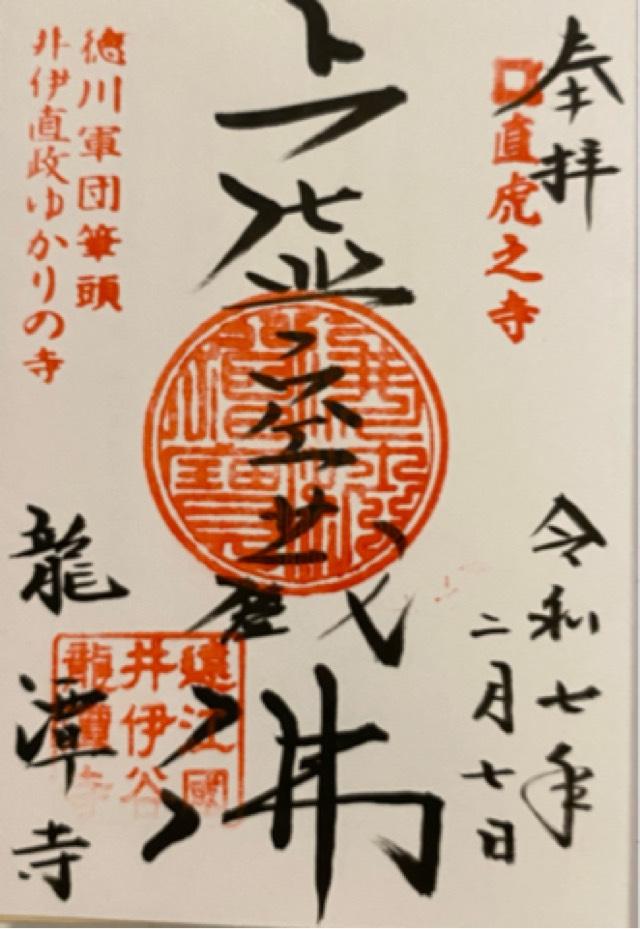 奉拝
直虎之寺
令和七年
二月七日
虚空蔵佛
徳川軍団筆頭
井伊直政ゆかりの寺
龍潭寺
遠江國
井伊谷
龍潭寺